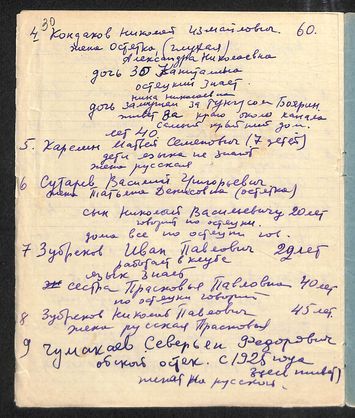 30
4. Кондаков Николай Измайлович. 60.
жена остячка (глухая)
Александра Николаевна
дочь 30 Капиталина
остяцкий знает.
Нина Николаевна
дочь замужем за тунгусом Боярин.
живет за краю около канала
самый крайний дом.
лет 40.
5. Карелин Матвей Семенович (7 детей)
дети языка не знают
жена русская
6 Сутарев Василий Григорьевич
жена Татьяна Денисовна (остячка)
сын Николай Васильевич 20 лет
говорит по остяцки.
дома все по остяцки гов.
7 Зубреков Иван Павлович 29 лет
работает в клубе
язык знает
сестра Прасковья Павловна 40 лет
по остяцки говорит
8 Зубреков Николай Павлович 45 лет.
жена русская Прасковья
9 Чумакаев Северьян Федорович
обской остяк. с 1925 года
здесь живет)
женат на русской.